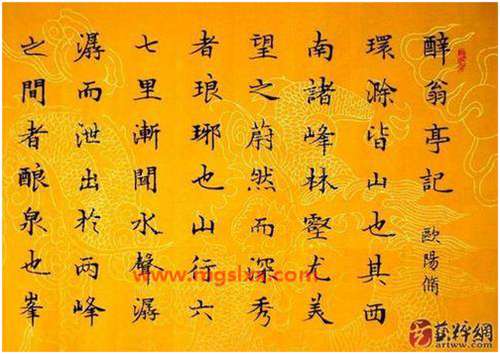 醉翁亭記 歐陽脩
環滁皆山也其西
南諸峰林壑尤美
望之蔚然而深秀
者琅琊也山行六
七里漸聞水聲潺
潺而泄出於兩峰
之間者酿泉也峯
藝粹網
artww.com